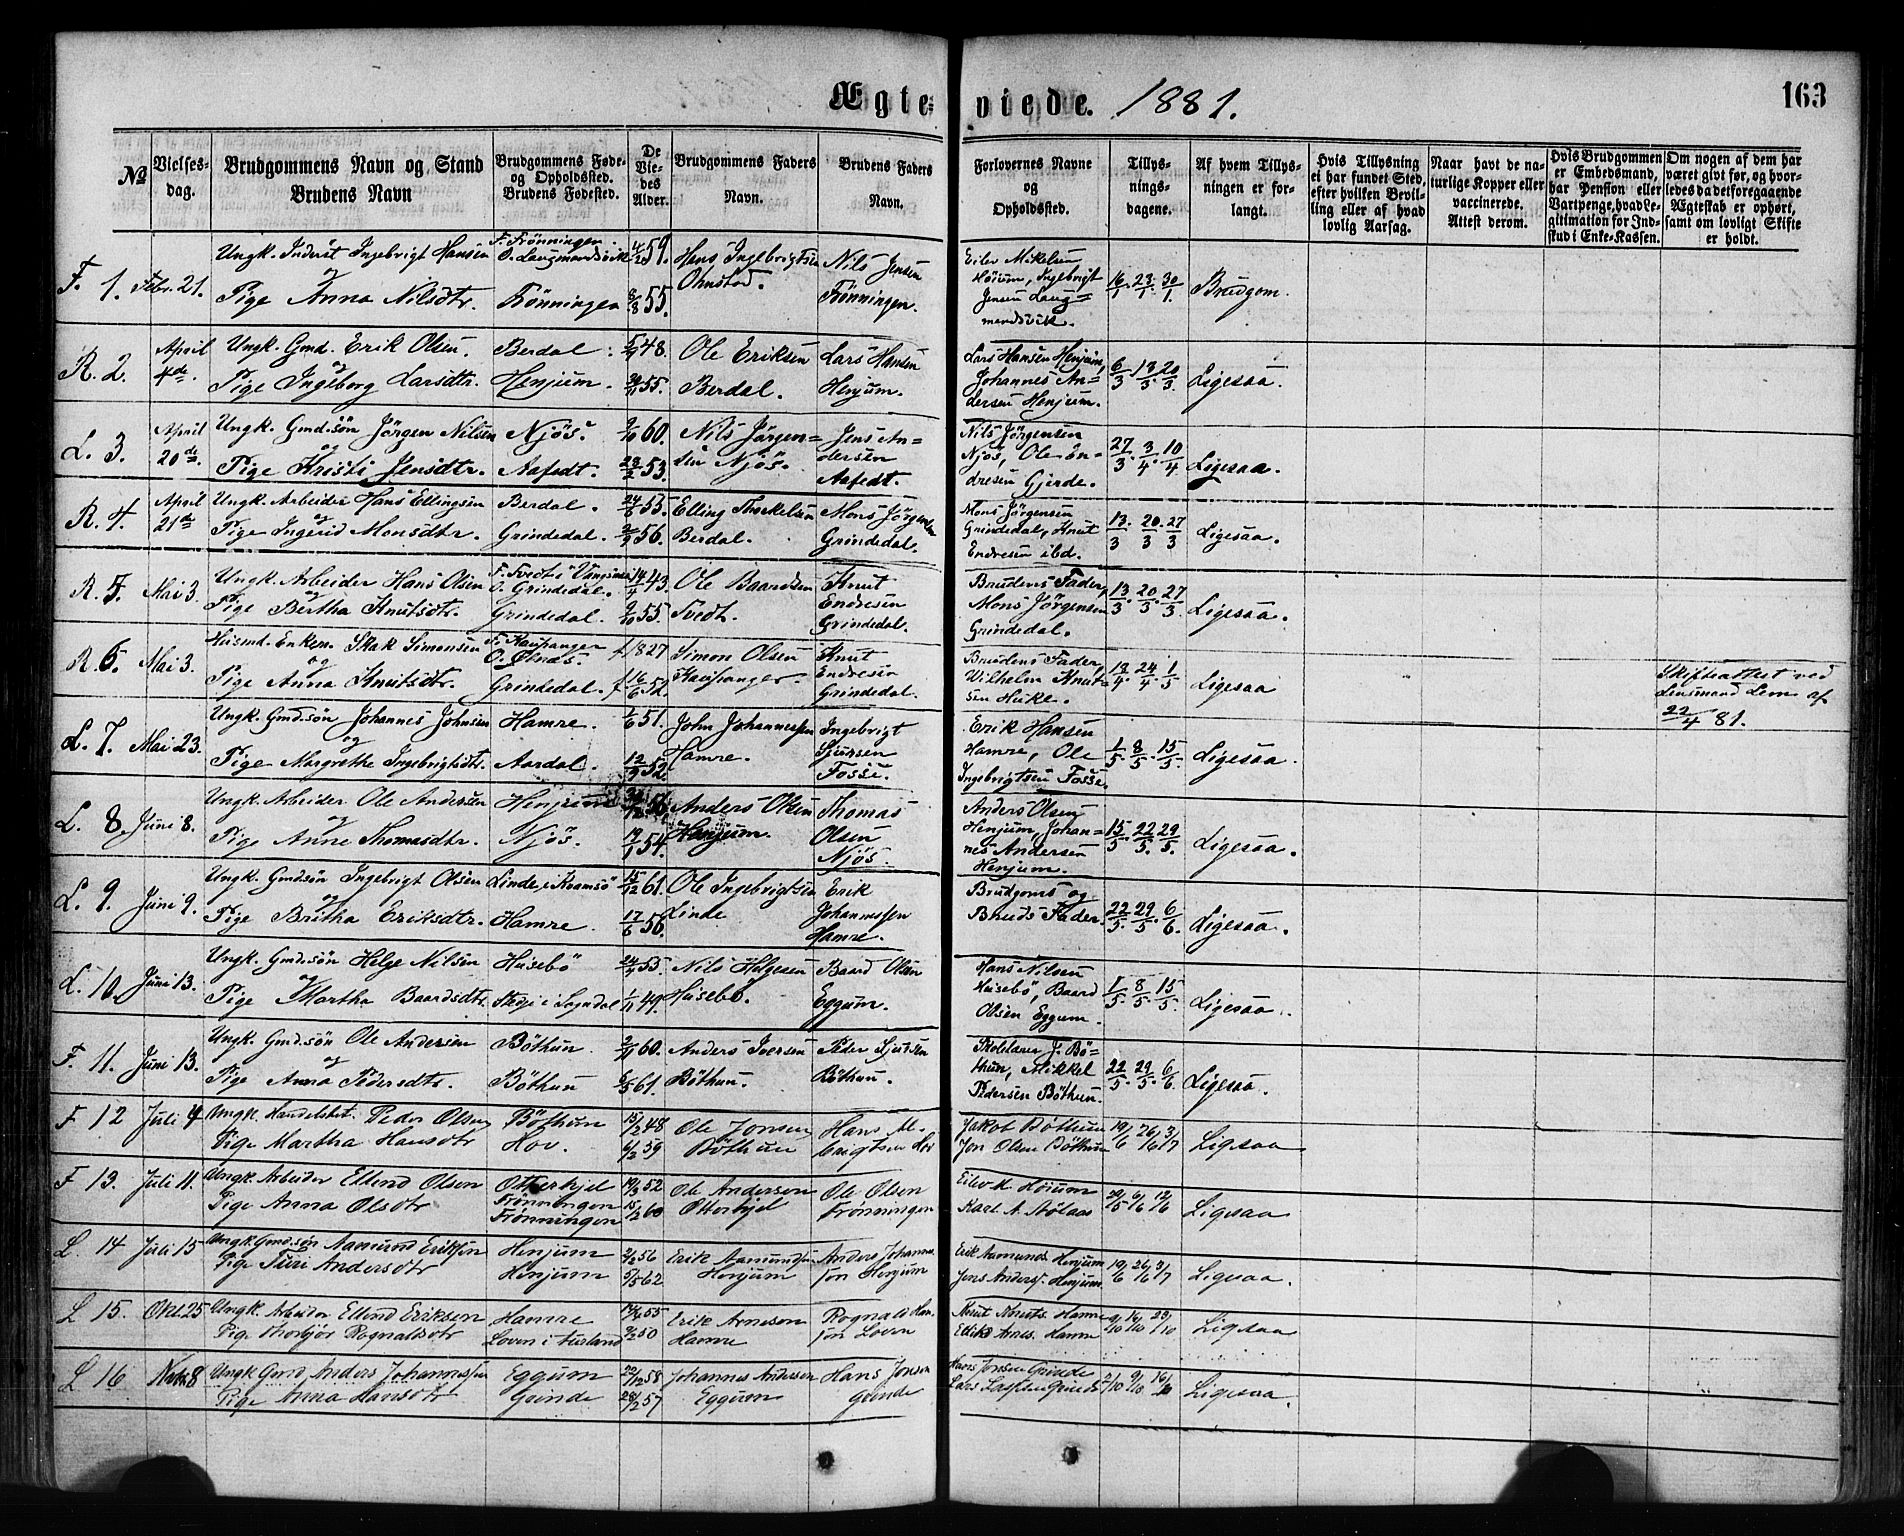 Ægte= viede. 1881.
163
№
Vielses-dag.
Brudgommens Navn og Stand
Brudens Navn
Brudgommens Føde- og Opholdssted.
Brudens Fødested.
De Vie-des Alder.
Brudgommens Faders Navn.
Brudens Faders Navn.
Forlovernes Navne og Opholdssted.
Tillys-nings-dagene.
Af hvem Tillys-ningen er for-langt.
Hvis Tillysning ei har fundet Sted, efter hvilken Bevil-ling eller af hvad lovlig Aarsag.
Naar havt de na-turlige Kopper eller vaccinerede. Attest derom.
Hvis Brudgommen er Embedsmand, har Pension eller Vartpenge, hvad Le-gitimation for Ind-skud i Enke-Kassen.
Om nogen af dem har været givt før, og hvor-ledes da det foregaaende Ægteskab er ophørt, samt om lovligt Skifte er holdt.
F. 1. Febr. 21. Ungk. Inderst Ingebrigt Hansen F. Frönningen. O. Laugmandsvik 59. Hans Ingebrigtsen Ohnstad. Nils Jensen Frönningen. Eiler Mikelsen Höium, Ingebrigt Jensen Laug=mandsvik. 16/1. 23/1. 30/1 Brudgom.
og Pige Anna Nilsdtr. Frönningen 8/8 55.
R. 2. April 4de. Ungk. Gmd. Erik Olsen. Berdal. 48. Ole Eriksen Berdal. Lars Hansen Henjum. Lars Hansen Henjum, Johannes An=dersen Henjum. 6/3 13/3. 20/3. Ligesaa.
og Pige Ingeborg Larsdtr. Henjum. 55.
L. 3. April 20de. Ungk. Gmd.sön Jörgen Nilsen Njös. 9/10 60. Nils Jörgen=sen Njös. Jens An=dersen Aafedt. Nils Jörgensen Njös, Ole An=dresen Gjerde. 27/3. 3/4. 10/4 Ligesaa.
og Pige Kristi Jensdtr. Aafedt. 23/2 53.
R. 4. April 21de Ungk. Arbeider Hans Ellingsen Berdal. 55. Elling Thorkelsen Berdal. Mons Jörgensen Grindedal. Mons Jörgensen Grindedal, Knut Endresen ibd. 13/3. 20/3. 27/3 Ligesaa.
og Pige Ingerid Monsdtr. Grindedal. 56.
R. 5. Mai 3. Ungk. Arbeider Hans Olsen F. Tvedt i Vangsnes O. Grindedal. 14/4 43. Ole Baardsen Tvedt. Knut Endresen Grindedal. Brudens Fader, Mons Jörgensen Grindedal. 13/3. 20/3. 27/3. Ligesaa.
og Pige Bertha Knutsdtr. Grindedal. 9/10 55.
R. 6. Mai 3. Husmd. Enkem. Skak Simonsen F. Kaupanger O. Ölnæs. f 1827 Simon Olsen Kaupanger. Knut Endresen Grindedal. Brudens Fader, Wilhelm Knut=sen Huke. 13/4. 24/4. 1/5 Ligesaa Skifteattest ved Lensmand Lem af 22/4 81.
og Pige Anna Knutsdtr. Grindedal. f 16/6 52.
L. 7. Mai 23. Ungk. Gmd.sön Johannes Johnsen Hamre. 1/6 51. John Johannessen Hamre. Ingebrigt Sjursen Fosse. Erik Hansen Hamre, Ole Ingebrigtsen Fosse. 1/5. 8/5. 15/5. Ligesaa.
og Pige Margrethe Ingebrigtsdtr. Aardal. 12/9 52.
L. 8. Juni 8. Ungk. Arbeider Ole Andersen Henjum 56. Anders Olsen Henjum. Thomas Olsen Njös. Anders Olsen Henjum, Johan=nes Andersen Henjum. 15/5. 22/5. 29/5. Ligesaa.
og Pige Anne Thomasdtr. Njös. 54.
L. 9. Juni 9. Ungk. Gmdsön Ingebrigt Olsen Linde, i Kvamsö 15/12 61. Ole Ingebrigtsen Linde Erik Johannessen Hamre. Brudgoms og Bruds Fader. 22/5. 29/5. 6/6. Ligesaa.
og Pige Britha Eriksdtr. Hamre. 17/6 56.
L. 10. Juni 13. Ungk. Gmd.sön Helge Nilsen Husebö 55. Nils Helgesen Husebö. Baard Olsen Eggum. Hans Nilsen Husebö, Baard Olsen Eggum. 1/5. 8/5. 15/5. Ligesaa.
og Pige Martha Baardsdtr. i Sogndal 49.
F. 11. Juni 13. Ungk. Gmd.sön Ole Andersen Böthun 60. Anders Iversen Böthun. Peder Sjursen Böthun. Skolelærer J. Bö=thun, Mikkel Pedersen Böthun. 22/5. 29/5. 6/6 Ligesaa.
og Pige Anna Pedersdtr. Böthun 61.
F 12 Juli 4 Ungk. Handelsbet. Peder Olsen Böthun 15/2 48 Ole Jonsen Böthun Hans M. Erigtsen Hov Jakob Böthun Jon Olsen Böthun 19/6 26/6 3/7 Ligesaa
Pige Martha Hansdtr Hov. 59
F 13. Juli 11. Ungk. Arbeider Ellend Olsen Otterhjel Frönningen 19/3 52 Ole Andersen Otterhjel Ole Olsen Frönningen Eilev K. Höium Karl A. Stölaas 29/5 6/6 12/6 Ligesaa
Pige Anna Olsdtr Frönningen 15/2 60
L. 14 Juli 15 Ungk Gmd.sön Aamund Eriksen Henjum 56 Erik Aamundsen Henjum Anders Johannes=sen Henjum Erik Aamunds. Henjum Jens Anders. Henjum 19/6 26/6 3/7 Ligesaa.
Pige Turi Andersdtr Henjum 5/5 62
L 15. Okt. 25 Ungk. Arbeider Ellend Eriksen Hamre 55 Erik Arnesen Hamre Rognald Han=sen Loven Knut Knuts. Hamre Ellend Arnes. Hamre 9/10 16/10 23/10 Ligesaa
Pige Thorbjör Rognaldsdtr Loven i Aurland 50
L 16 Novbr. 8 Ungk Gmd. Anders Johannessen Eggum 22/12 58 Johannes Andersen Eggum Hans Jonsen Grinde Hans Jensen Grinde Lars Grinde 2/10 9/10 16/10 Ligesaa.
Pige Anna Hansdtr Grinde 28/2 57